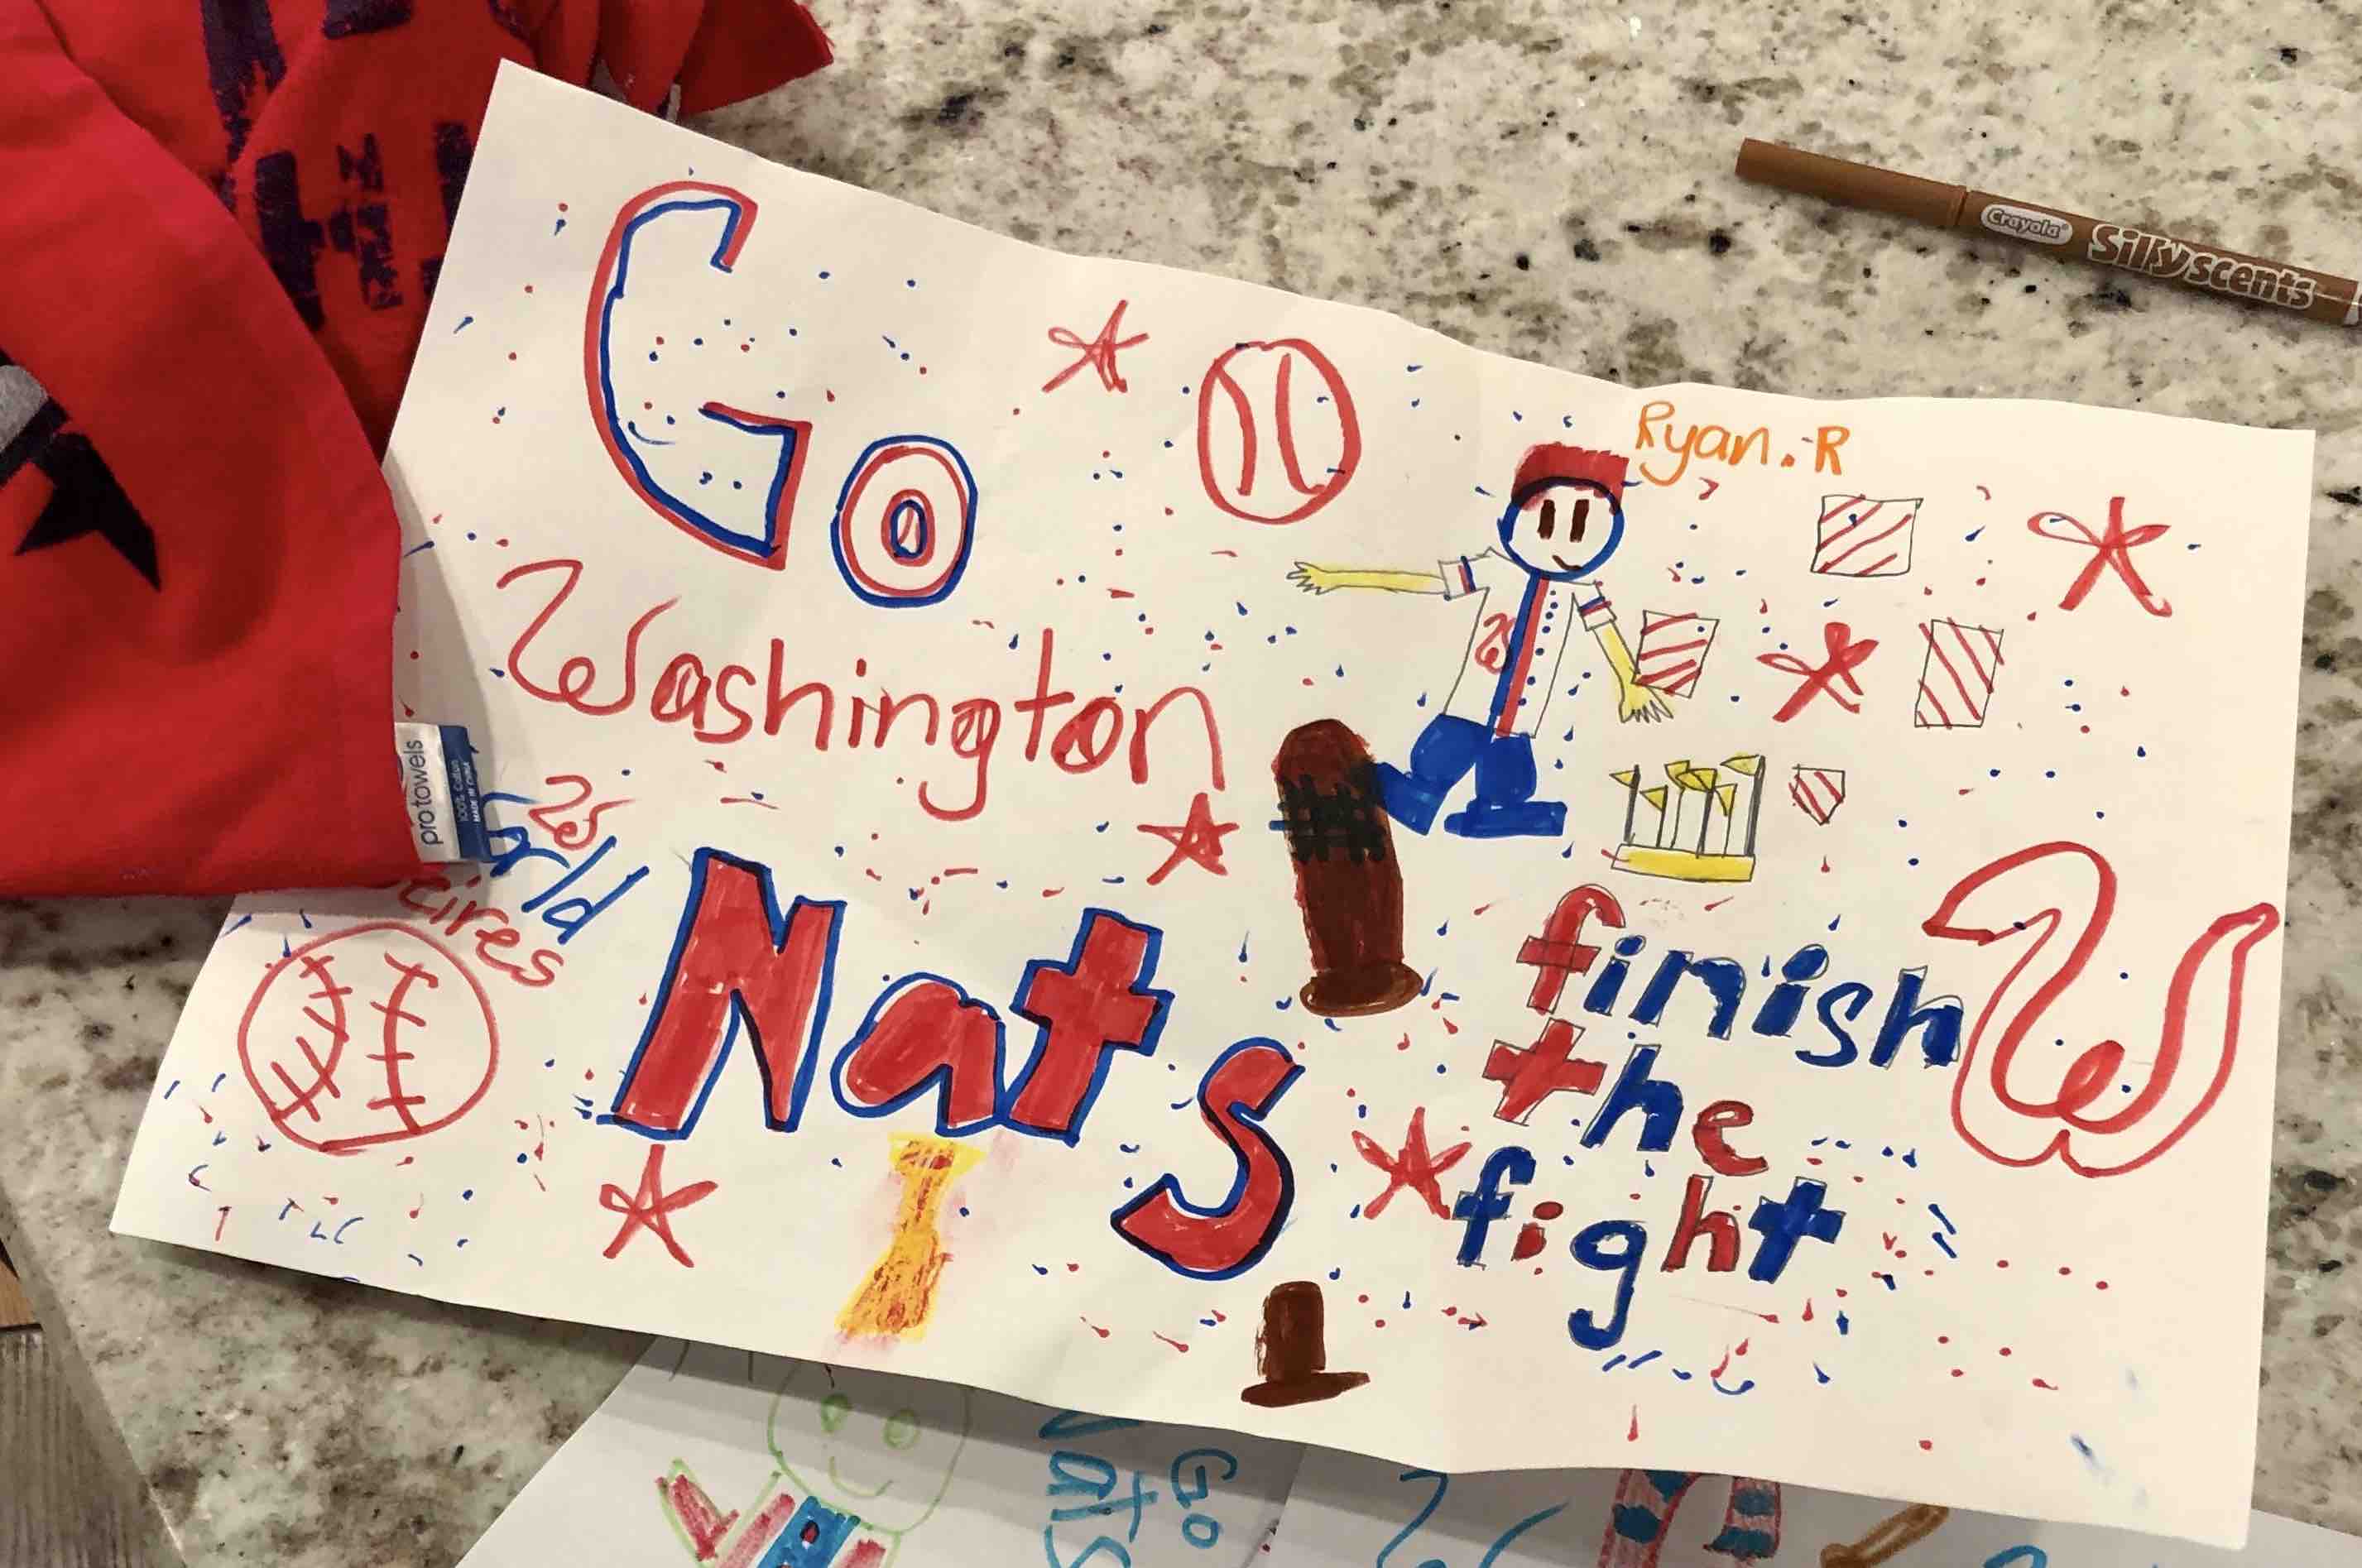 Go
Washington
Nats
W
World
cires
Ryan.R
W
finish
the
fight
W
Crayola
Silly scents
pro towels
100% Cotton
MADE IN CHINA
Go
Nats